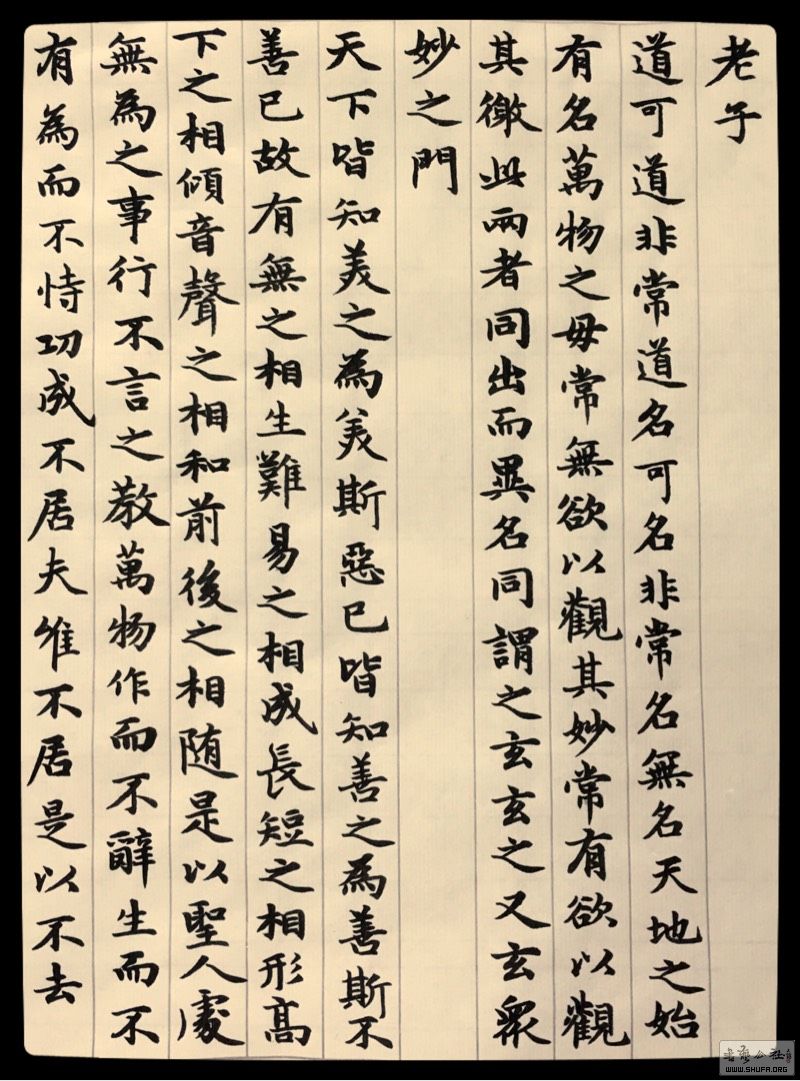 老子
道可道非常道名可名非常名無名天地之始
有名萬物之母常無欲以觀其妙常有欲以觀
其徼此兩者同出而異名同謂之玄玄之又玄衆
妙之門
天下皆知美之為美斯惡已皆知善之為善斯不
善已故有無之相生難易之相成長短之相形高
下之相傾音聲之相和前後之相随是以聖人處
無為之事行不言之教萬物作而不辭生而不
有為而不恃功成不居夫維不居是以不去
書法公社
WWW.SHUFA.ORG